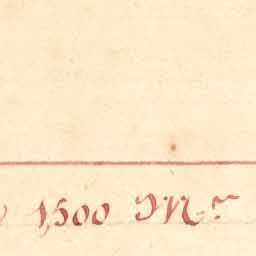 1,500 M.r